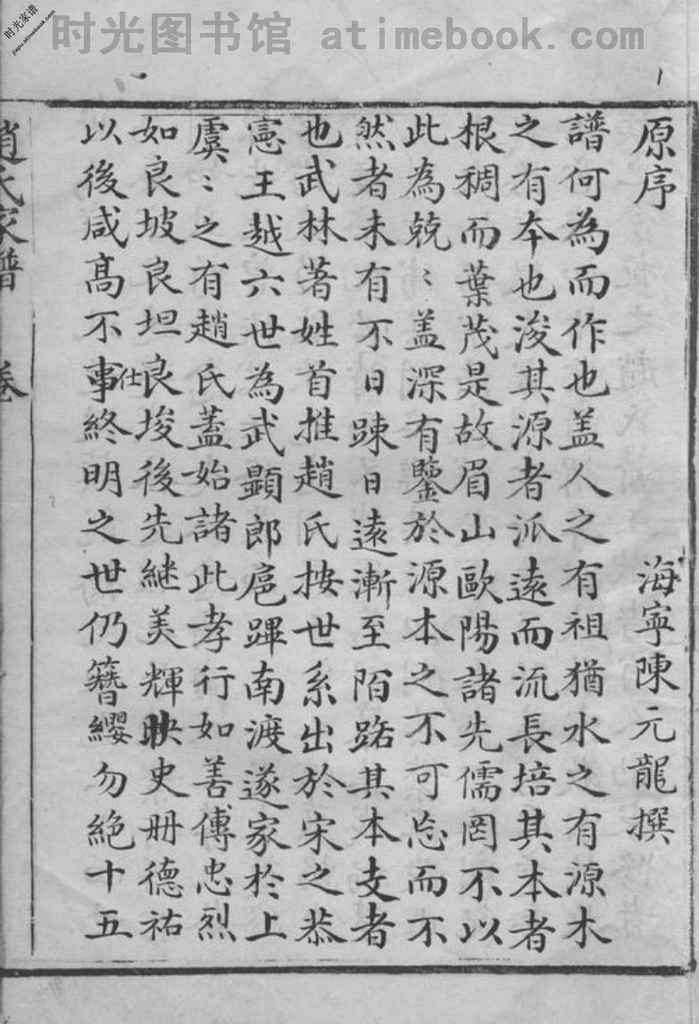 时光家谱
jiapu.atimebook.com
时光图书馆 atimebook.com
1
原序
海寧陳元龍撰
譜何為而作也盖人之有祖猶水之有源木
之有本也浚其源者派遠而流長培其本者
根稠而葉茂是故眉山歐陽諸先儒罔不以
此為兢〻盖深有鑒於源本之不可忘而不
然者未有不日踈日遠漸至陌路其本支者
也武林著姓首推趙氏按世系出於宋之恭
憲王越六世為武顯郎扈蹕南渡遂家於上
虞〻之有趙氏蓋始諸此孝行如善傅忠烈
如良坡良坦良埈後先継美輝映史册德祐
以後咸高不事仕終明之世仍簪纓勿絶十五
趙氏家譜 卷